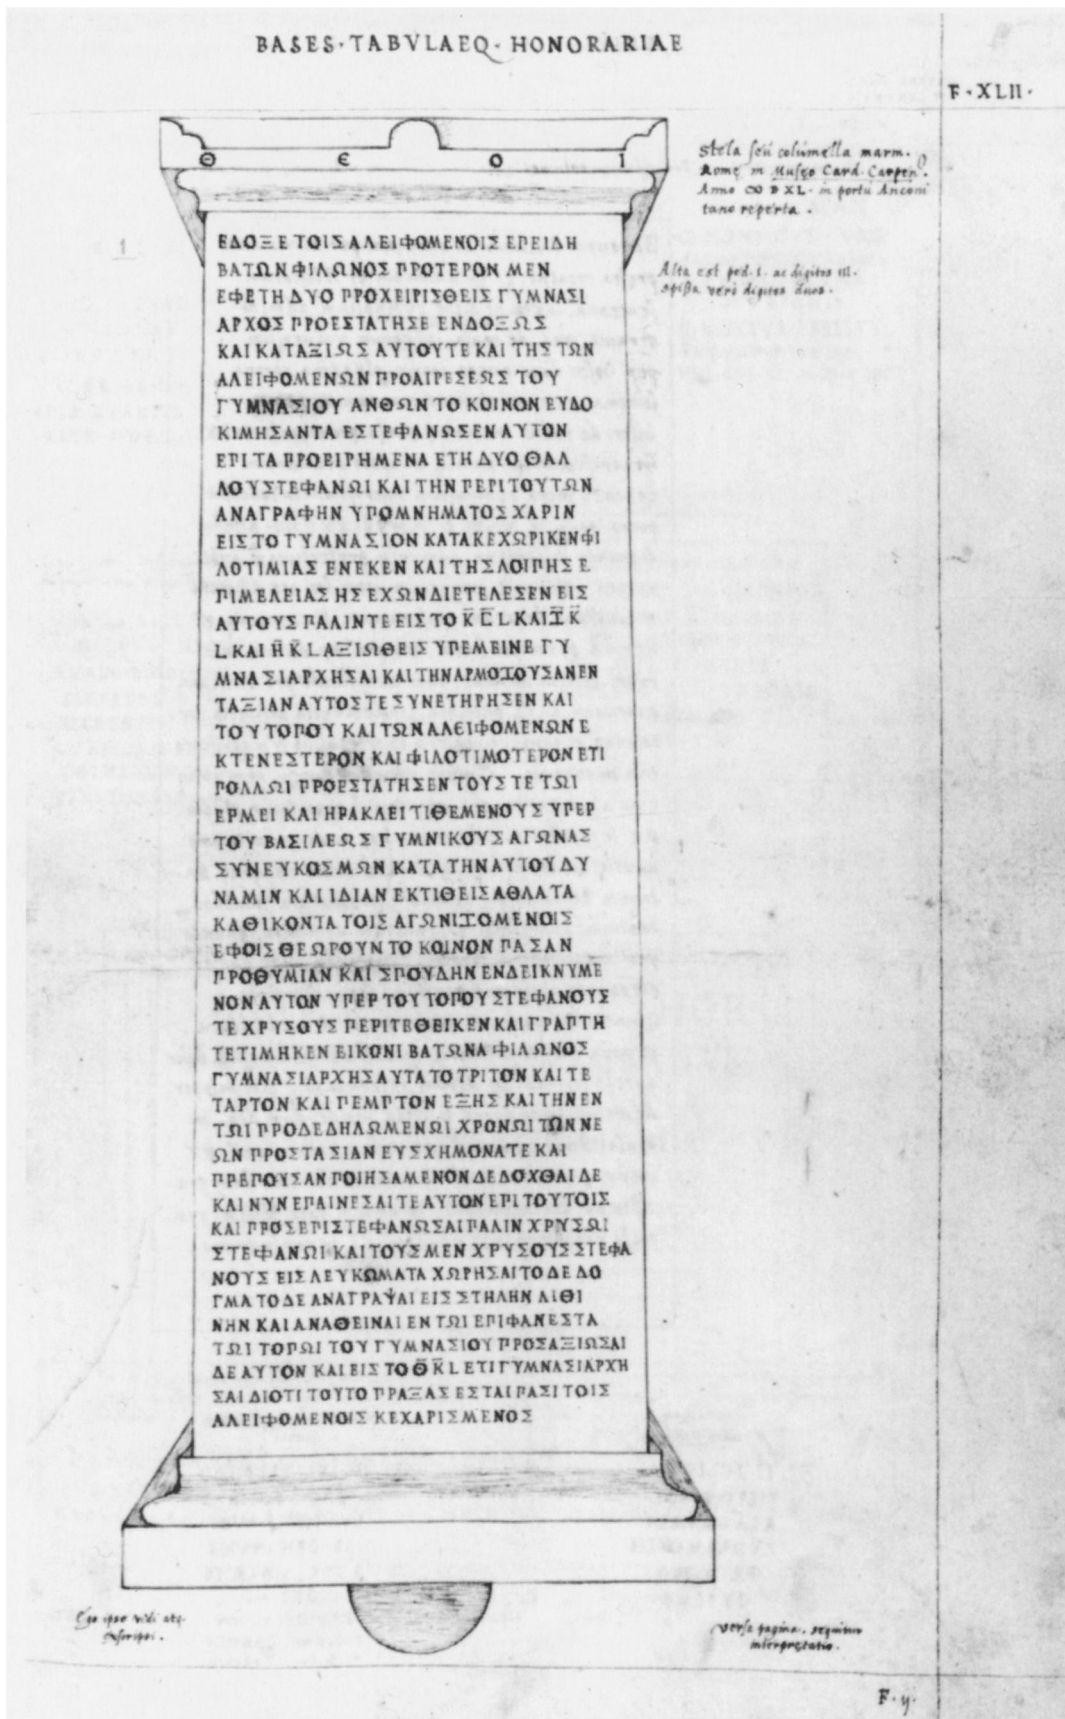 BASES · TABVLAEQ · HONORARIAE
F · XLII ·
Θ Є Ο Ι
Stela seu columella marm.
Romę in Musęo Card. Carpen.
Anno ꝏ D XL. in portu Anconi
tano reperta.
1
Alta est ped. I. ac digitos III.
spissa verò digitos duos.
ΕΔΟΞΕ ΤΟΙΣ ΑΛΕΙΦΟΜΕΝΟΙΣ ΕΠΕΙΔΗ
ΒΑΤΩΝ ΦΙΛΩΝΟΣ ΠΡΟΤΕΡΟΝ ΜΕΝ
ΕΦΕΤΗ ΔΥΟ ΠΡΟΧΕΙΡΙΣΘΕΙΣ ΓΥΜΝΑΣΙ
ΑΡΧΟΣ ΠΡΟΕΣΤΑΤΗΣΕ ΕΝΔΟΞΩΣ
ΚΑΙ ΚΑΤΑΞΙΩΣ ΑΥΤΟΥΤΕ ΚΑΙ ΤΗΣ ΤΩΝ
ΑΛΕΙΦΟΜΕΝΩΝ ΠΡΟΑΙΡΕΣΕΩΣ ΤΟΥ
ΓΥΜΝΑΣΙΟΥ ΑΝΘΩΝ ΤΟ ΚΟΙΝΟΝ ΕΥΔΟ
ΚΙΜΗΣΑΝΤΑ ΕΣΤΕΦΑΝΩΣΕΝ ΑΥΤΟΝ
ΕΠΙ ΤΑ ΠΡΟΕΙΡΗΜΕΝΑ ΕΤΗ ΔΥΟ ΘΑΛ
ΛΟΥ ΣΤΕΦΑΝΩΙ ΚΑΙ ΤΗΝ ΠΕΡΙ ΤΟΥΤΩΝ
ΑΝΑΓΡΑΦΗΝ ΥΠΟΜΝΗΜΑΤΟΣ ΧΑΡΙΝ
ΕΙΣ ΤΟ ΓΥΜΝΑΣΙΟΝ ΚΑΤΑΚΕΧΩΡΙΚΕΝ ΦΙ
ΛΟΤΙΜΙΑΣ ΕΝΕΚΕΝ ΚΑΙ ΤΗΣ ΛΟΙΠΗΣ Ε
ΠΙΜΕΛΕΙΑΣ ΗΣ ΕΧΩΝ ΔΙΕΤΕΛΕΣΕΝ ΕΙΣ
ΑΥΤΟΥΣ ΠΑΛΙΝ ΤΕ ΕΙΣ ΤΟ Κ̅ Ϛ̅ L ΚΑΙ Ζ̅ Κ̅
L ΚΑΙ Η̅ Κ̅ L ΑΞΙΩΘΕΙΣ ΥΠΕΜΕΙΝΕ ΓΥ
ΜΝΑΣΙΑΡΧΗΣΑΙ ΚΑΙ ΤΗΝ ΑΡΜΟΖΟΥΣΑΝ ΕΝ
ΤΑΞΙΑΝ ΑΥΤΟΣ ΤΕ ΣΥΝΕΤΗΡΗΣΕΝ ΚΑΙ
ΤΟΥ ΤΟΠΟΥ ΚΑΙ ΤΩΝ ΑΛΕΙΦΟΜΕΝΩΝ Ε
ΚΤΕΝΕΣΤΕΡΟΝ ΚΑΙ ΦΙΛΟΤΙΜΟΤΕΡΟΝ ΕΤΙ
ΠΟΛΛΩΙ ΠΡΟΕΣΤΑΤΗΣΕΝ ΤΟΥΣ ΤΕ ΤΩΙ
ΕΡΜΕΙ ΚΑΙ ΗΡΑΚΛΕΙ ΤΙΘΕΜΕΝΟΥΣ ΥΠΕΡ
ΤΟΥ ΒΑΣΙΛΕΩΣ ΓΥΜΝΙΚΟΥΣ ΑΓΩΝΑΣ
ΣΥΝΕΥΚΟΣΜΩΝ ΚΑΤΑ ΤΗΝ ΑΥΤΟΥ ΔΥ
ΝΑΜΙΝ ΚΑΙ ΙΔΙΑΝ ΕΚΤΙΘΕΙΣ ΑΘΛΑ ΤΑ
ΚΑΘΙΚΟΝΤΑ ΤΟΙΣ ΑΓΩΝΙΖΟΜΕΝΟΙΣ
ΕΦΟΙΣ ΘΕΩΡΟΥΝ ΤΟ ΚΟΙΝΟΝ ΠΑΣΑΝ
ΠΡΟΘΥΜΙΑΝ ΚΑΙ ΣΠΟΥΔΗΝ ΕΝΔΕΙΚΝΥΜΕ
ΝΟΝ ΑΥΤΟΝ ΥΠΕΡ ΤΟΥ ΤΟΠΟΥ ΣΤΕΦΑΝΟΥΣ
ΤΕ ΧΡΥΣΟΥΣ ΠΕΡΙΤΕΘΕΙΚΕΝ ΚΑΙ ΓΡΑΠΤΗ
ΤΕΤΙΜΗΚΕΝ ΕΙΚΟΝΙ ΒΑΤΩΝΑ ΦΙΛΩΝΟΣ
ΓΥΜΝΑΣΙΑΡΧΗΣΑΥΤΑ ΤΟ ΤΡΙΤΟΝ ΚΑΙ ΤΕ
ΤΑΡΤΟΝ ΚΑΙ ΠΕΜΠΤΟΝ ΕΞΗΣ ΚΑΙ ΤΗΝ ΕΝ
ΤΩΙ ΠΡΟΔΕΔΗΛΩΜΕΝΩΙ ΧΡΟΝΩΙ ΤΩΝ ΝΕ
ΩΝ ΠΡΟΣΤΑΣΙΑΝ ΕΥΣΧΗΜΟΝΑ ΤΕ ΚΑΙ
ΠΡΕΠΟΥΣΑΝ ΠΟΙΗΣΑΜΕΝΟΝ ΔΕΔΟΧΘΑΙ ΔΕ
ΚΑΙ ΝΥΝ ΕΠΑΙΝΕΣΑΙ ΤΕ ΑΥΤΟΝ ΕΠΙ ΤΟΥΤΟΙΣ
ΚΑΙ ΠΡΟΣΕΠΙΣΤΕΦΑΝΩΣΑΙ ΠΑΛΙΝ ΧΡΥΣΩΙ
ΣΤΕΦΑΝΩΙ ΚΑΙ ΤΟΥΣ ΜΕΝ ΧΡΥΣΟΥΣ ΣΤΕΦΑ
ΝΟΥΣ ΕΙΣ ΛΕΥΚΩΜΑΤΑ ΧΩΡΗΣΑΙ ΤΟ ΔΕ ΔΟ
ΓΜΑ ΤΟΔΕ ΑΝΑΓΡΑΨΑΙ ΕΙΣ ΣΤΗΛΗΝ ΛΙΘΙ
ΝΗΝ ΚΑΙ ΑΝΑΘΕΙΝΑΙ ΕΝ ΤΩΙ ΕΠΙΦΑΝΕΣΤΑ
ΤΩΙ ΤΟΠΩΙ ΤΟΥ ΓΥΜΝΑΣΙΟΥ ΠΡΟΣΑΞΙΩΣΑΙ
ΔΕ ΑΥΤΟΝ ΚΑΙ ΕΙΣ ΤΟ Θ̅ Κ̅ L ΕΤΙ ΓΥΜΝΑΣΙΑΡΧΗ
ΣΑΙ ΔΙΟΤΙ ΤΟΥΤΟ ΠΡΑΞΑΣ ΕΣΤΑΙ ΠΑΣΙ ΤΟΙΣ
ΑΛΕΙΦΟΜΕΝΟΙΣ ΚΕΧΑΡΙΣΜΕΝΟΣ
Ego ipse vidi atq.
descripsi.
Versa pagina, sequitur
interpretatio.
F · ij ·